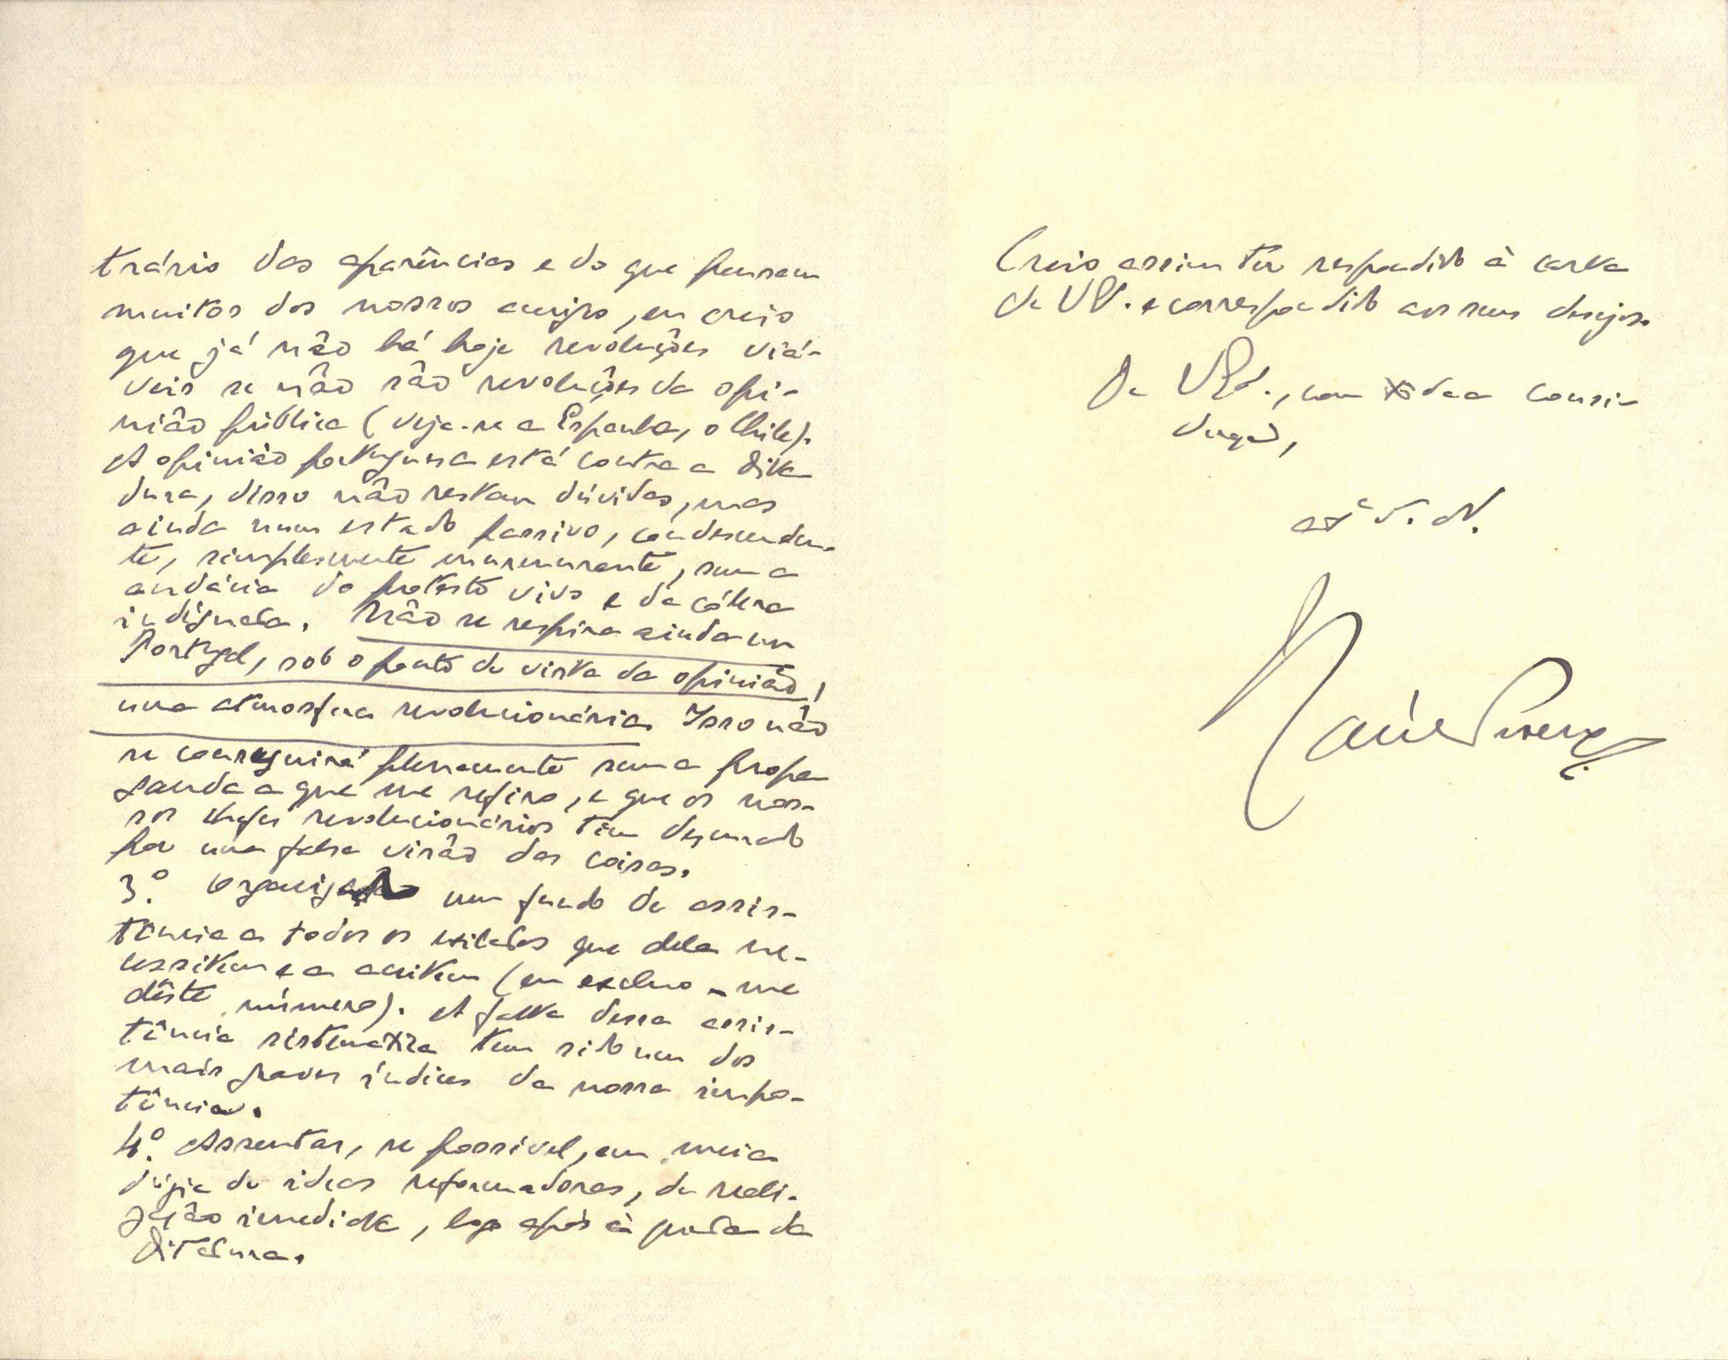 trário das aparências e do que pensam
muitos dos nossos amigos, eu creio
que já não há hoje revoluções viá-
veis se não são revoluções da opi-
nião pública (veja-se a Espanha, o Chile).
A opinião portuguesa está contra a dita
dura, disso não restam dúvidas, mas
ainda num estado passivo, condescenden-
te, simplesmente murmurante, sem a
audácia do protesto vivo e da cólera
indignada. Não se respira ainda em
Portugal, sob o ponto de vista da opinião,
uma atmosfera revolucionária. Isso não
se conseguirá plenamente sem a propa
ganda a que me refiro, e que os nos-
sos chefes revolucionários têm descurado
por uma falsa visão das coisas.
3.º Organizar um fundo de assis-
tência a todos os exilados que dela ne-
cessitem e a aceitem (eu excluo-me
dêste número). A falta dessa assis-
tência sistemática tem sido um dos
mais graves índices da nossa impo-
tência.
4.º Assentar, se possivel, em meia
dúzia de ideas reformadoras, de reali-
zação imediata, logo após à queda da
Ditadura.
Creio assim ter respondido à carta
de V. e correspondido aos seus desejos.
De V., com toda a consi-
deração,